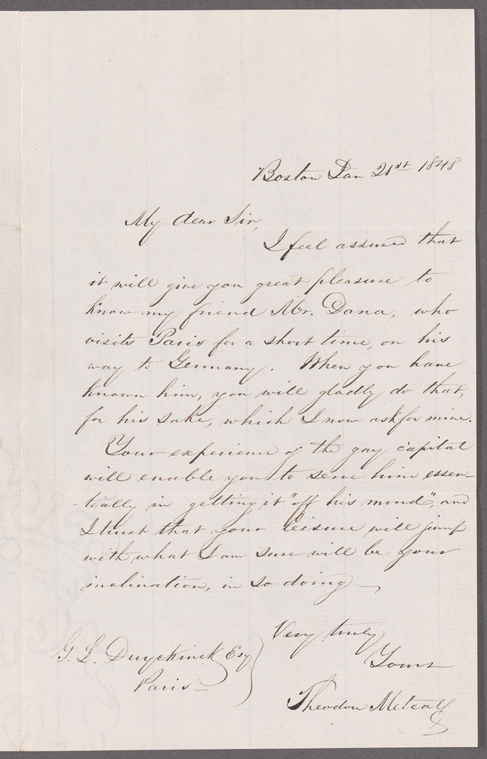 Boston Jan 21st 1848
My dear Sir,
I feel assured that
it will give you great pleasure to
know my friend Mr. Dana, who
visits Paris for a short time, on his
way to Germany. When you have
known him, you will gladly do that,
for his sake, which I now ask for mine.
Your experience of the gay capital
will enable you to serve him essen-
tially in getting it "off his mind", and
I trust that your leisure will jump
with what I am sure will be your
inclination, in so doing —
Very truly
Yours
G. L. Duyckinck Esq
Paris —
Theodore Metcalf